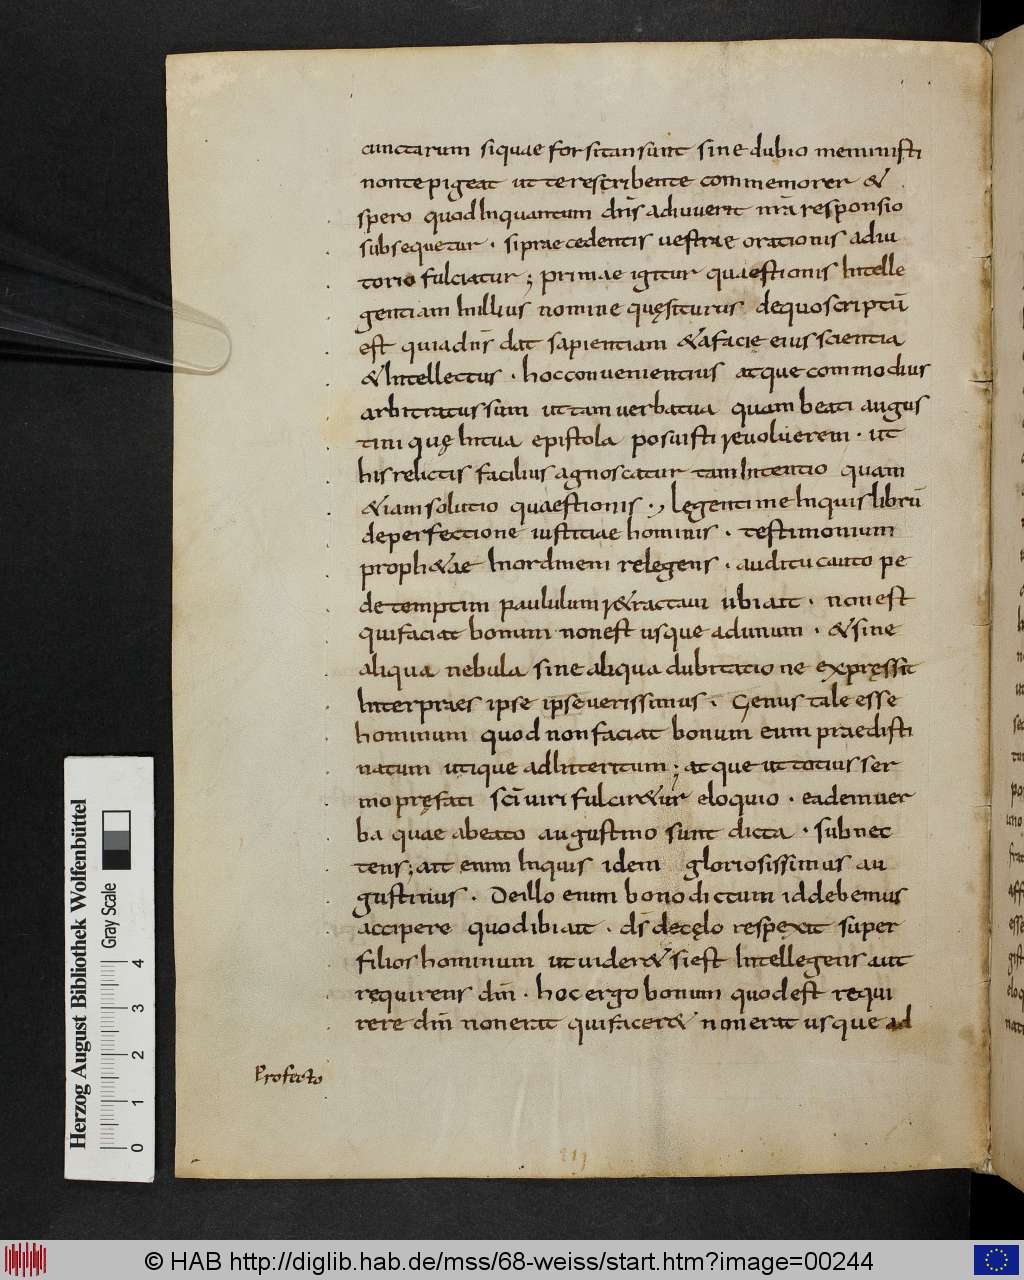 cunctarum siquae forsitan sunt sine dubio meministi
non te pigeat ut te rescribente commemorer &
spero quod Inquantum dn̄s adiuuerit nr̄a responsio
subsequetur · si praecedentis uestrae orationis adiu
torio fulciatur ; primae igitur quaestionis Intelle
gentiam Inillius nomine quęsiturus dequo scriptū
est quia dn̄s dat sapientiam & a facie eius scientia
& Intellectus · hoc conuenientius atque commodius
arbitratus sum ut tam uerba tua quam beati augus
tini quę Intua epistola posuisti reuoluerem · ut
his relictis facilius agnoscatur tam Intentio quam
&iam solutio quaestionis ·, Lęgenti me Inquis librū
de perfectione iustitiae hominis · testimonium
proph&ae Inordinem relegens · auditu cauto pe
detemptim paululum r&ractaui ubi ait · non est
qui faciat bonum non est usque ad unum · & sine
aliqua nebula sine aliqua dubitatione expręssit
Interpraes ipse ipse uerissimus · Genus tale esse
hominum quod non faciat bonum eum praedisti
natum utique ad Interitum ; atque ut totius ser
mo pręfati sc̄i uiri fulcir&ur eloquio · eadem uer
ba quae a beato augustino sunt dicta · subnec
tens ; ait enim Inquis idem gloriosissimus au
gustinus · De illo enim bono dictum id debemus
accipere quod ibi ait · ds̄ de cęlo respexit super
filios hominum ut uider& si est Intellegens aut
requirens dm̄ · hoc ergo bonum quod est requi
rere dm̄ non erat qui facer& non erat usque ad
Profecto
Herzog August Bibliothek Wolfenbüttel
Gray Scale
0 1 2 3 4
© HAB http://diglib.hab.de/mss/68-weiss/start.htm?image=00244